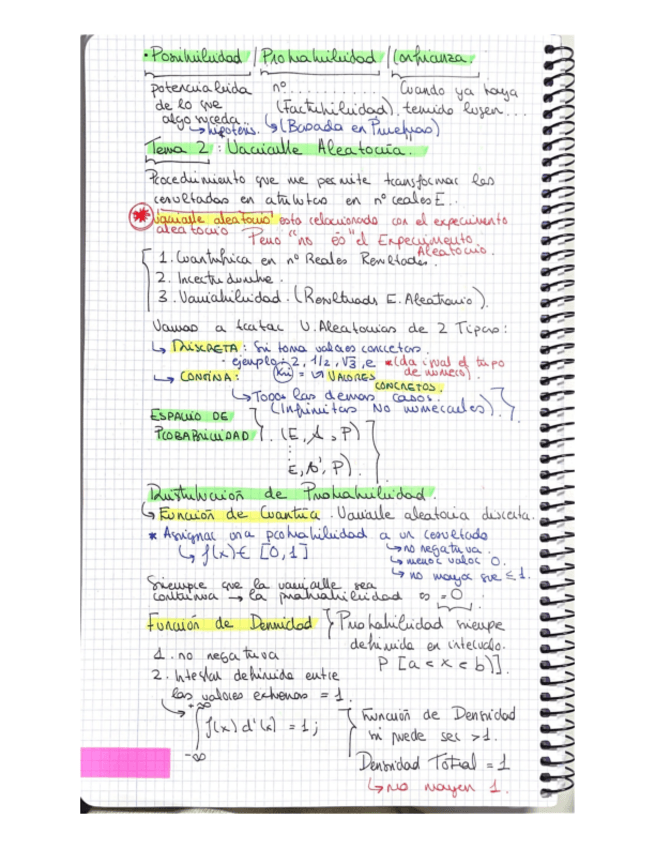 · Posibilidad / Probabilidad / Confianza.
potencialida nº ........... Cuando ya haya
de lo que (Factibilidad). tenido lugar...
algo suceda. ↳ hipótesis. ↳ (Basada en Pruebas)
Tema 2: Variable Aleatoria.
Procedimiento que me permite transformar los
resultados en atributos en nº reales E..
* Variable aleatorio esta relacionado con el experimento
aleatorio Pero "no es" el Experimento
Aleatorio.
1. Cuantifica en nº Reales Resultados.
2. Incertidumbre.
3. Variabilidad. (Resultados E. Aleatorio).
Vamos a tratar V. Aleatorias de 2 Tipos:
↳ DISCRETA: Si toma valores concretos.
· ejemplo: 2, 1/2, √3, e * (da igual el tipo
de número).
↳ CONTINA: = VALORES
CONCRETOS.
↳ Todos los demas casos.
(Infinitas No numerables).
ESPACIO DE
PROBABILIDAD } . (E, A, P)
E, A', P).
Distribución de Probabilidad.
↳ Función de Cuantía. Variable aleatoria discreta.
* Asignar una probabilidad a un resultado
↳ f(x) ∈ [0,1] ↳ no negativa.
↳ menor valor 0.
↳ no mayor que ≤ 1.
Siempre que la variable sea
continua → la probabilidad es = 0.
Función de Densidad } Probabilidad siempe
definida en intervalo.
1. no negativa P [a < x < b)].
2. Integral definida entre
los valores extremos = 1.
+∞
∫ f(x) d'(x) = 1; Función de Densidad
si puede ser > 1.
-∞
Densidad Total = 1
↳ no mayor 1.